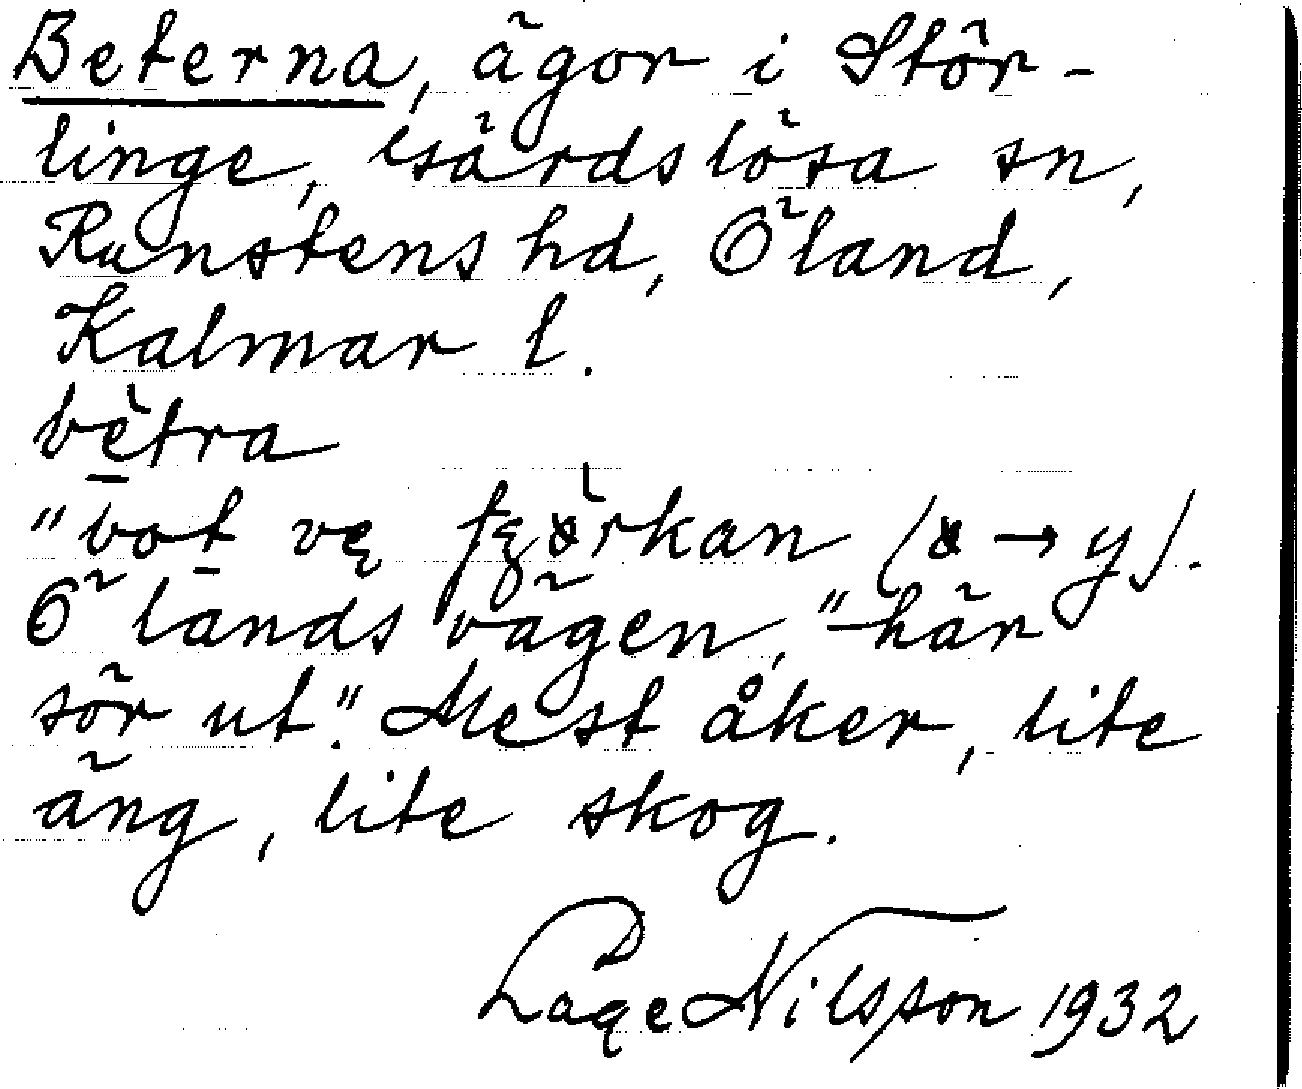 Beterna, ägor i Stör-
linge, Gärdslösa sn,
Runstens hd, Öland,
Kalmar l.
bètra
"bot
Ölands vägen, "här
sör ut". Mest åker, lite
äng, lite skog.
Lage Nilsson 1932